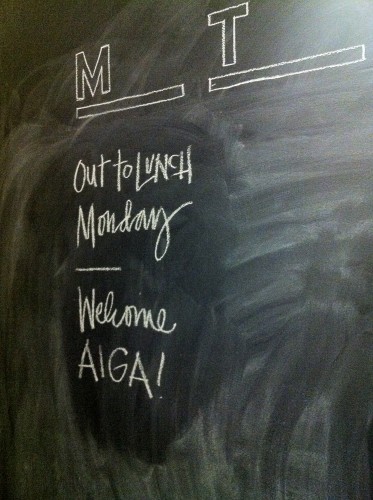 M T
Out to LUNCH
Monday
Welcome
AIGA!